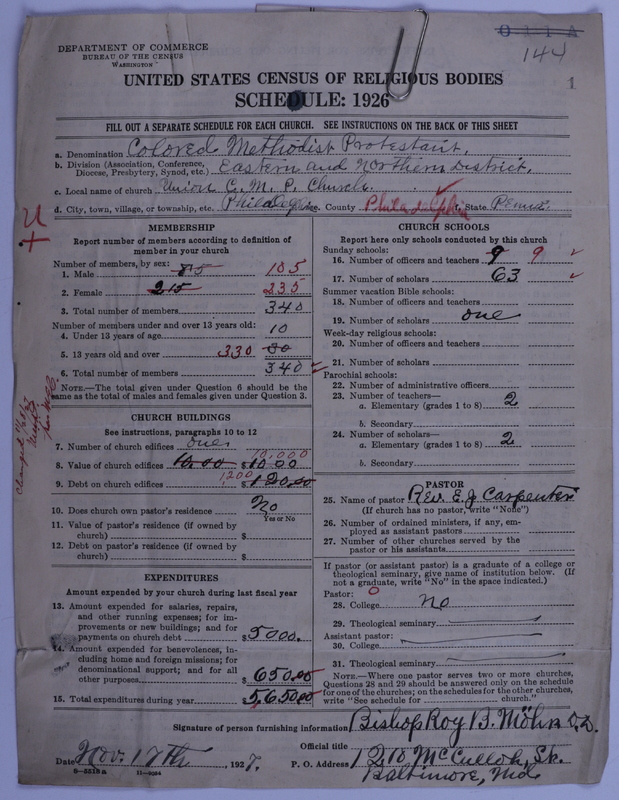 DEPARTMENT OF COMMERCE
BUREAU OF THE CENSUS
WASHINGTON
0 1 1 A
144
1
UNITED STATES CENSUS OF RELIGIOUS BODIES
SCHEDULE: 1926
FILL OUT A SEPARATE SCHEDULE FOR EACH CHURCH. SEE INSTRUCTIONS ON THE BACK OF THIS SHEET
a. Denomination Colored Methodist Protestant.
b. Division (Association, Conference, Diocese, Presbytery, Synod, etc.) Eastern and Northern District.
c. Local name of church Union C. M. P. Church
d. City, town, village, or township, etc. County Philadelphia State Penna.
MEMBERSHIP
Report number of members according to definition of
member in your church
Number of members, by sex:
1. Male 85 105
2. Female 215 235
3. Total number of members 340
Number of members under and over 13 years old:
4. Under 13 years of age 10
5. 13 years old and over 330 30
6. Total number of members 340
NOTE.—The total given under Question 6 should be the
same as the total of males and females given under Question 3.
CHURCH BUILDINGS
See instructions, paragraphs 10 to 12
7. Number of church edifices one
10,000
8. Value of church edifices 10.00 $1000
1200
9. Debt on church edifices $120.00
10. Does church own pastor's residence No
Yes or No
11. Value of pastor's residence (if owned by
church) $
12. Debt on pastor's residence (if owned by
church) $
EXPENDITURES
Amount expended by your church during last fiscal year
13. Amount expended for salaries, repairs,
and other running expenses; for im-
provements or new buildings; and for
payments on church debt $5000.
14. Amount expended for benevolences, in-
cluding home and foreign missions; for
denominational support; and for all
other purposes $650.00
15. Total expenditures during year $5,650.00
CHURCH SCHOOLS
Report here only schools conducted by this church
Sunday schools:
16. Number of officers and teachers 9 9
17. Number of scholars 63
Summer vacation Bible schools:
18. Number of officers and teachers
19. Number of scholars one
Week-day religious schools:
20. Number of officers and teachers
21. Number of scholars
Parochial schools:
22. Number of administrative officers
23. Number of teachers—
a. Elementary (grades 1 to 8) 2
b. Secondary
24. Number of scholars—
a. Elementary (grades 1 to 8) 2
b. Secondary
PASTOR
25. Name of pastor Rev. E. J. Carpenter
(If church has no pastor, write "None")
26. Number of ordained ministers, if any, em-
ployed as assistant pastors
27. Number of other churches served by the
pastor or his assistants
If pastor (or assistant pastor) is a graduate of a college or
theological seminary, give name of institution below. (If
not a graduate, write "No" in the space indicated.)
Pastor: 0
28. College no
29. Theological seminary
Assistant pastor:
30. College
31. Theological seminary
NOTE.—Where one pastor serves two or more churches,
Questions 28 and 29 should be answered only on the schedule
for one of the churches; on the schedules for the other churches,
write "See schedule for church."
Signature of person furnishing information Bishop Roy B.
Official title
Date Nov. 17th, 1927. P. O. Address 1210 McCulloh, St.
Baltimore, Md.
8—5518a 11—9084